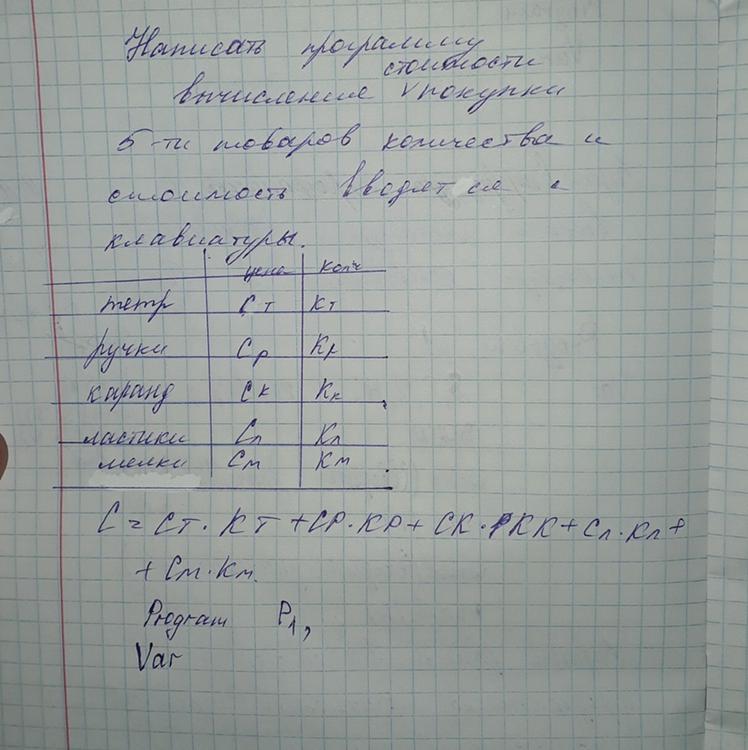 Написать программу
стоимости
вычисление V покупки
5-ти товаров количества и
стоимость вводят ся с
клавиатуры.
цена колич
тетр Ст Кт
ручки Ср Кр
каранд Ск Кк
ластики Сл Кл
мелки См Км
С = Ст · Кт + Ср · Кр + Ск · Кк + Сл · Кл +
+ См · Км.
Program P1,
Var